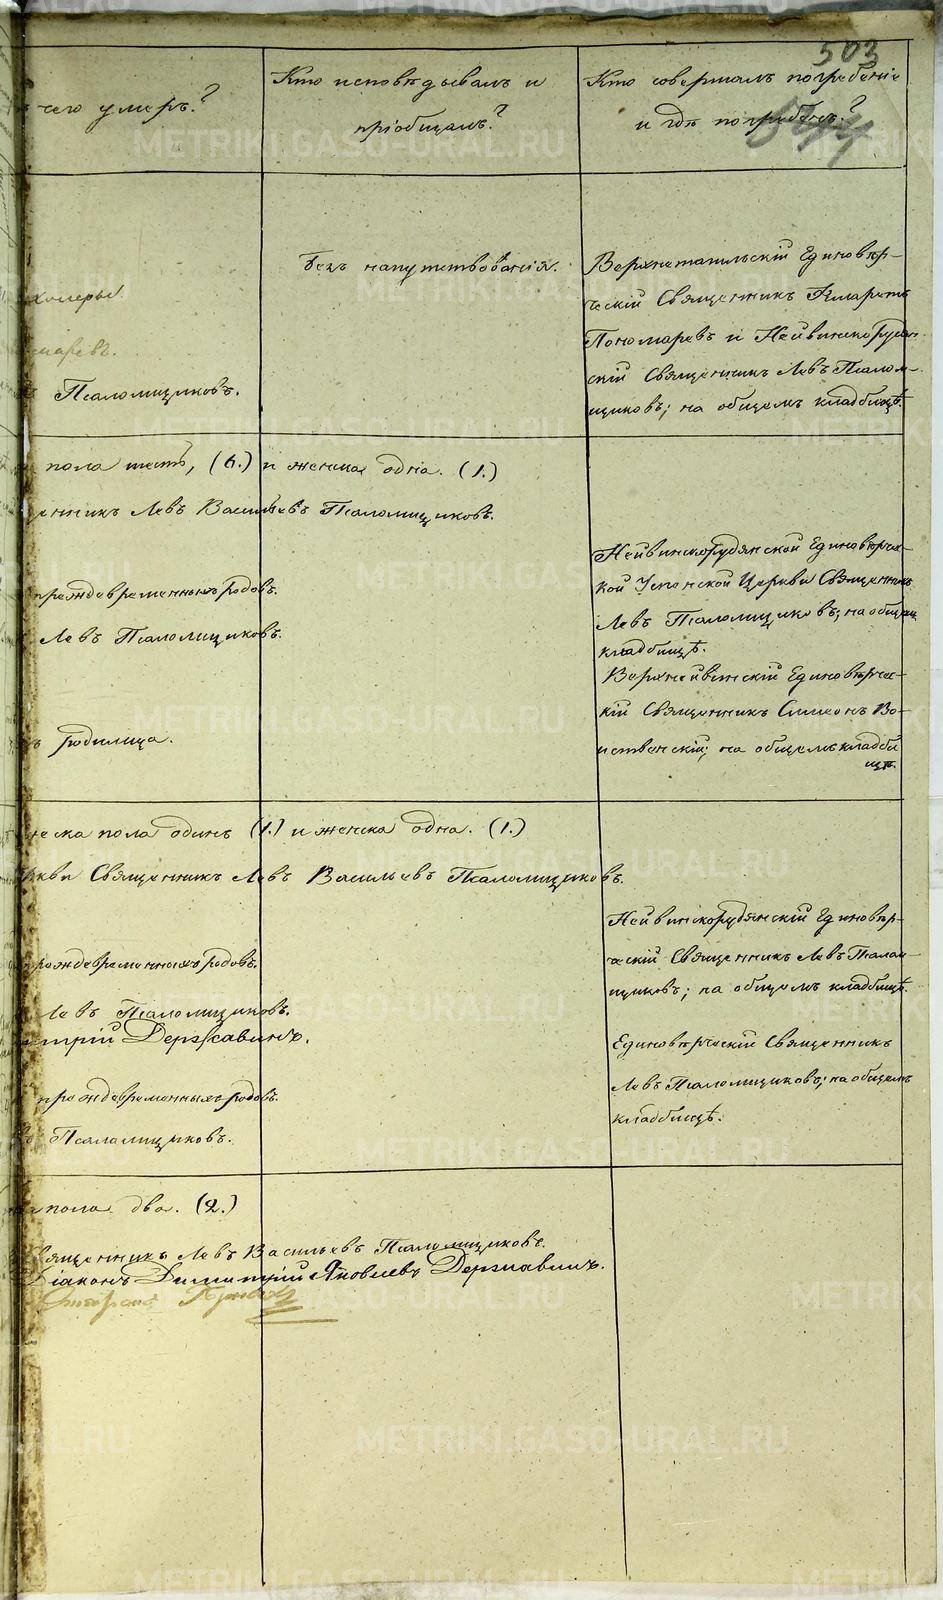 503
чего умеръ?
Кто исповѣдывалъ и
пріобщалъ?
Кто совершалъ погребеніе
и гдѣ погребенъ?
холеры.
Псаломщиковъ.
Безъ напутствованія.
Верхнетагильскій Единовѣр-
ческій Священникъ
Пономаревъ и Нейвинскорудян-
скій Священникъ Левъ Псалом-
щиковъ; на общемъ кладбищѣ.
пола шесть, (6.) и женска одна. (1.)
Левъ Васильевъ Псаломщиковъ.
преждевременныхъ родовъ.
Левъ Псаломщиковъ.
Нейвинскорудянской Единовѣрчес-
кой Успенской Церкви Священникъ
Левъ Псаломщиковъ; на общемъ
кладбищѣ.
родимца.
Верхнейвинскій Единовѣрчес-
кій Священникъ Симеонъ Во-
иственскій; на общемъ кладби
щѣ.
пола одинъ (1.) и женска одна. (1.)
Священникъ Левъ Васильевъ Псаломщиковъ.
преждевременныхъ родовъ.
Левъ Псаломщиковъ.
Державинъ.
Нейвинскорудянскій Единовѣр-
ческій Священникъ Левъ Псалом-
щиковъ; на общемъ кладбищѣ.
преждевременныхъ родовъ.
Псаломщиковъ.
Единовѣрческій Священникъ
Левъ Псаломщиковъ; на общемъ
кладбищѣ.
пола два. (2.)
Священникъ Левъ Васильевъ Псаломщиковъ.
Діаконъ Димитрій Яковлевъ Державинъ.
METRIKI.GASO-URAL.RU